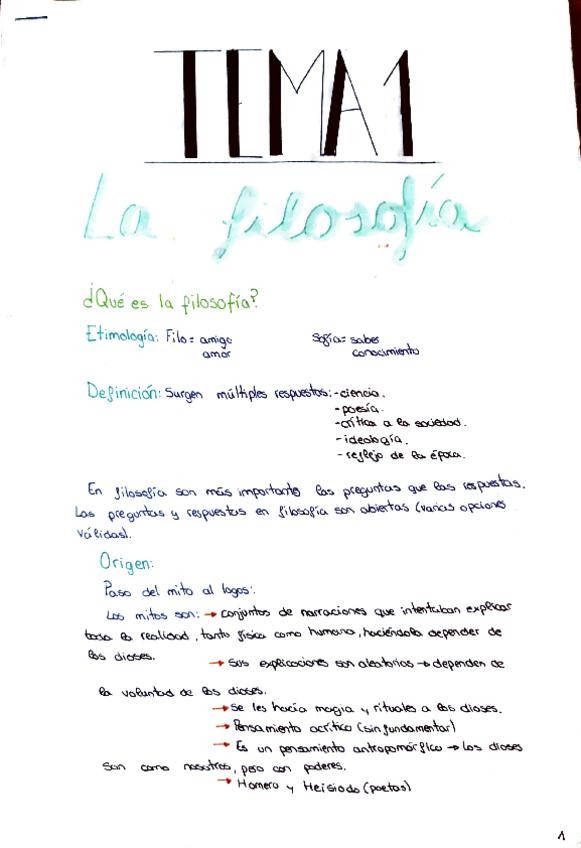 TEMA 1
La filosofía
¿Qué es la filosofía?
Etimología: Filo = amigo Sofía = saber
amor conocimiento
Definición: Surgen múltiples respuestas: - ciencia.
- poesía.
- crítica a la sociedad.
- ideología.
- reflejo de la época.
En filosofía son más importante las preguntas que las respuestas.
Las preguntas y respuestas en filosofía son abiertas (varias opciones
válidas).
Origen:
Paso del mito al logos:
Los mitos son: → conjuntos de narraciones que intentaban explicar
toda la realidad, tanto física como humana, haciéndola depender de
los dioses. → Sus explicaciones son aleatorias → dependen de
la voluntad de los dioses.
→ Se les hacía magia y rituales a los dioses.
→ Pensamiento acrítico (sin fundamentar)
→ Es un pensamiento antropomórfico → los dioses
son como nosotros, pero con poderes.
→ Homero y Heisiodo (poetas)
1